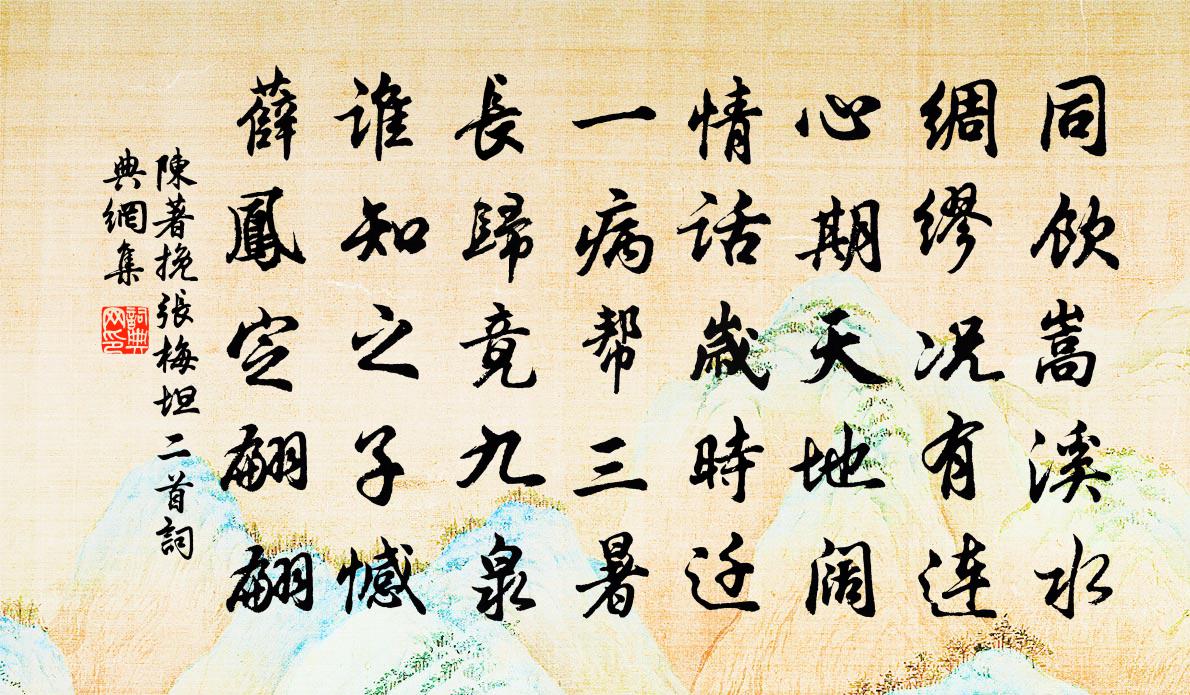 同飲嵩溪水
綢繆況有連
心期天地闊
情話歲時迁
一病帮三暑
長歸竟九泉
誰知之子憾
薛鳳定翩翩
陳著挽張梅坦二首詞
典網集
詞典网印